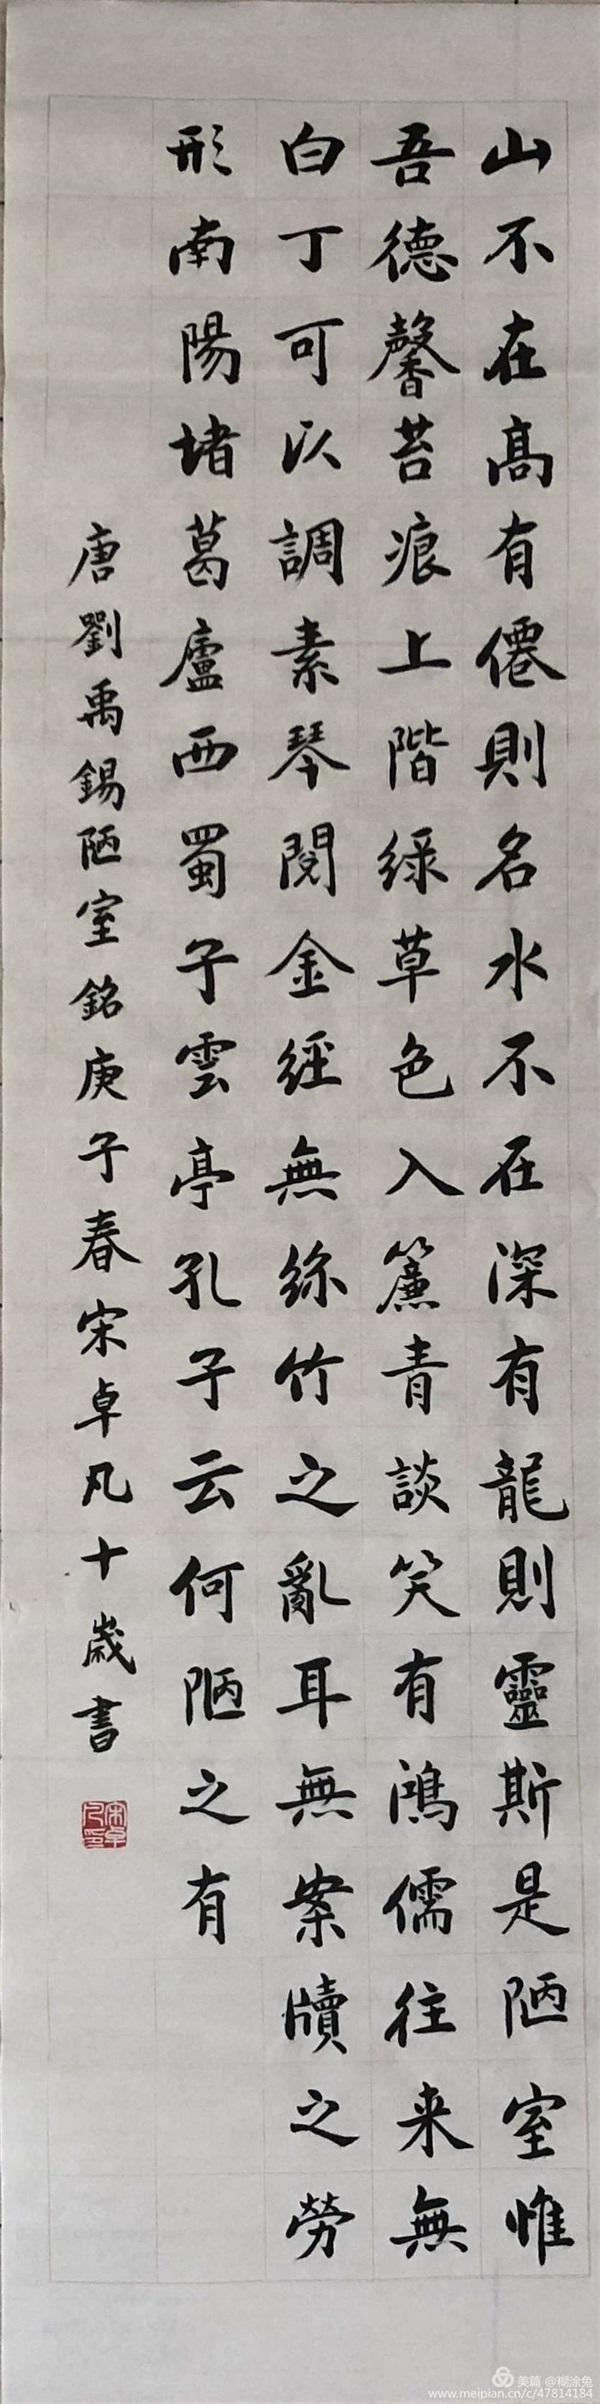 山不在高有僊則名水不在深有龍則靈斯是陋室惟
吾德馨苔痕上階綠草色入簾青談笑有鴻儒往来無
白丁可以調素琴閱金經無絲竹之亂耳無案牘之勞
形南陽堵葛廬西蜀子雲亭孔子云何陋之有
唐劉禹錫陋室銘庚子春宋卓凡十歲書
宋卓凡印
美篇 @糊涂兔
www.meipian.cn/c/47814184